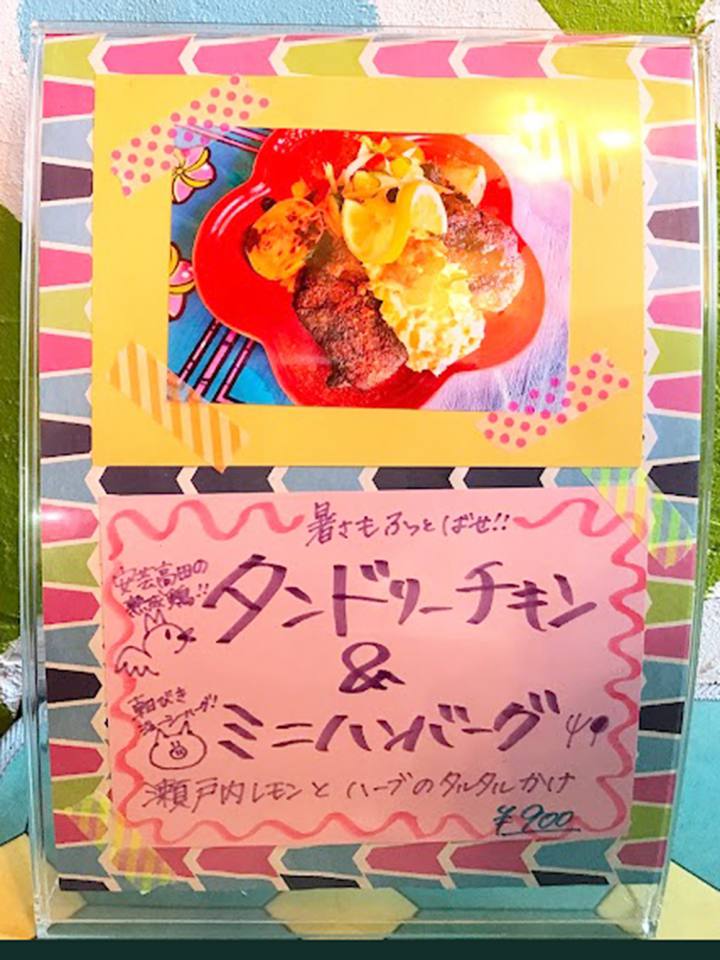 暑さもふっとばせ!!
安芸高田の
熟成鶏!!
タンドリーチキン
&
朝びき
ジューシーバーグ!
ミニハンバーグ
瀬戸内レモンとハーブのタルタルかけ
¥900